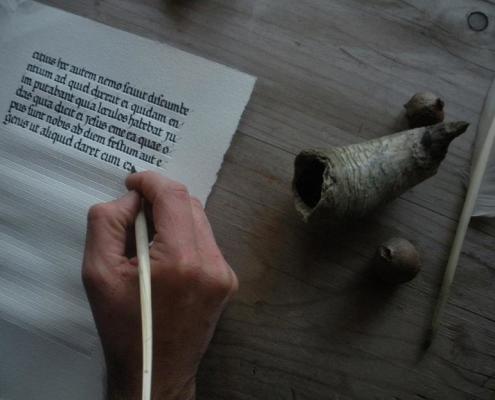 citius hoc autem nemo sciuit discumbe
ntium ad quid dixerit ei quidam en
im putabant quia loculos habebat iu
das quia dicit ei jesus eme ea quae o
pus sunt nobis ad diem festum aut e
genis ut aliquid daret cum